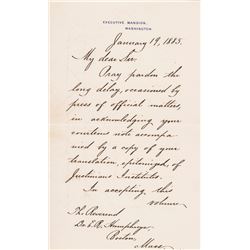 EXECUTIVE MANSION,
WASHINGTON.
January 19, 1885.
My dear Sir:
Pray pardon the
long delay, occasioned by
press of official matters,
in acknowledging your
courteous note accompa-
nied by a copy of your
translation, epitomized, of
Justinians Institutes.
In accepting this
volume,
The Reverend
Dr. E. R. Humphreys
Boston,
Mass.